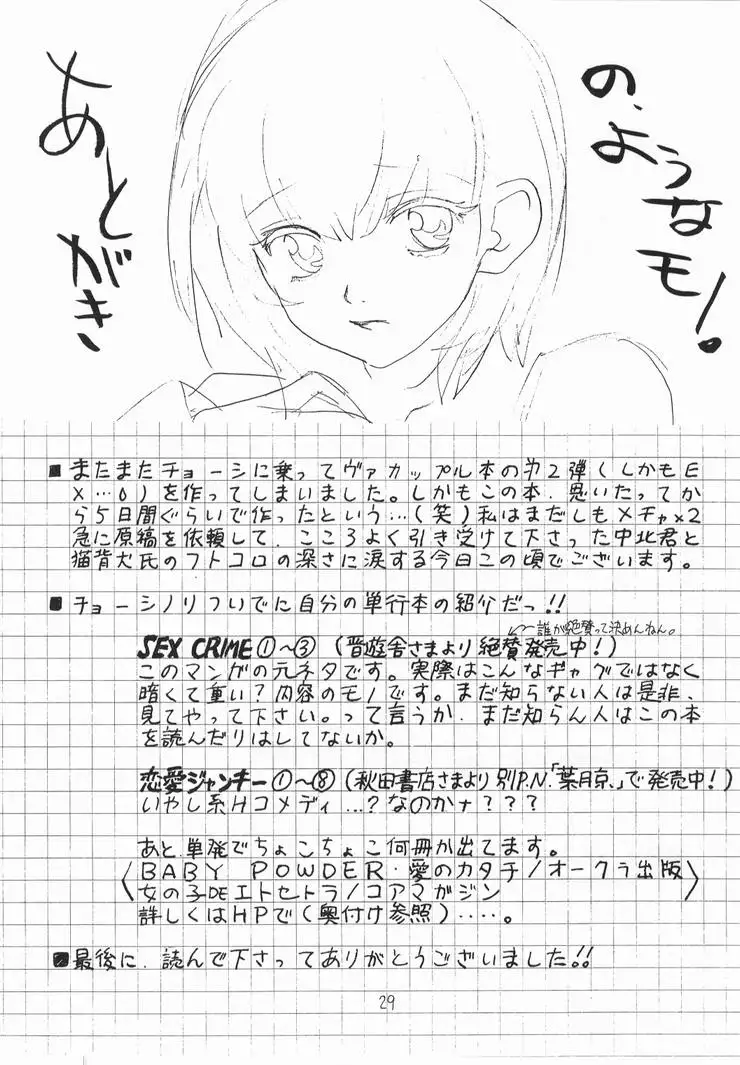 あとがき
の、ようなモノ。
■またまたチョーシに乗ってヴァカップル本の第2弾(しかもE
X…o)を作ってしまいました。しかもこの本、思いたってか
ら5日間ぐらいで作ったという…(笑)私はまだしもメチャx2
急に原稿を依頼して、こころよく引き受けて下さった中北君と
猫背犬氏のフトコロの深さに涙する今日この頃でございます。
■チョーシノリついでに自分の単行本の紹介だっ!!
誰が絶賛って決めんねん。
SEX CRIME①〜③(晋遊舎さまより絶賛発売中!)
このマンガの元ネタです。実際はこんなギャグではなく
暗くて重い?内容のモノです。まだ知らない人は是非、
見てやって下さい。って言うか、まだ知らん人はこの本
を読んだりはしてないか。
恋愛ジャンキー①〜⑧(秋田書店さまより別P.N.「葉月京、」で発売中!)
いやし系Hコメディ...?なのかナ???
あと、単発でちょこちょこ何冊か出てます。
〈BABY POWDER・愛のカタチ/オークラ出版
女の子DEエトセトラ/コアマガジン〉
詳しくはHPで(奥付け参照)‥‥。
■最後に、読んで下さってありがとうございました!!
29